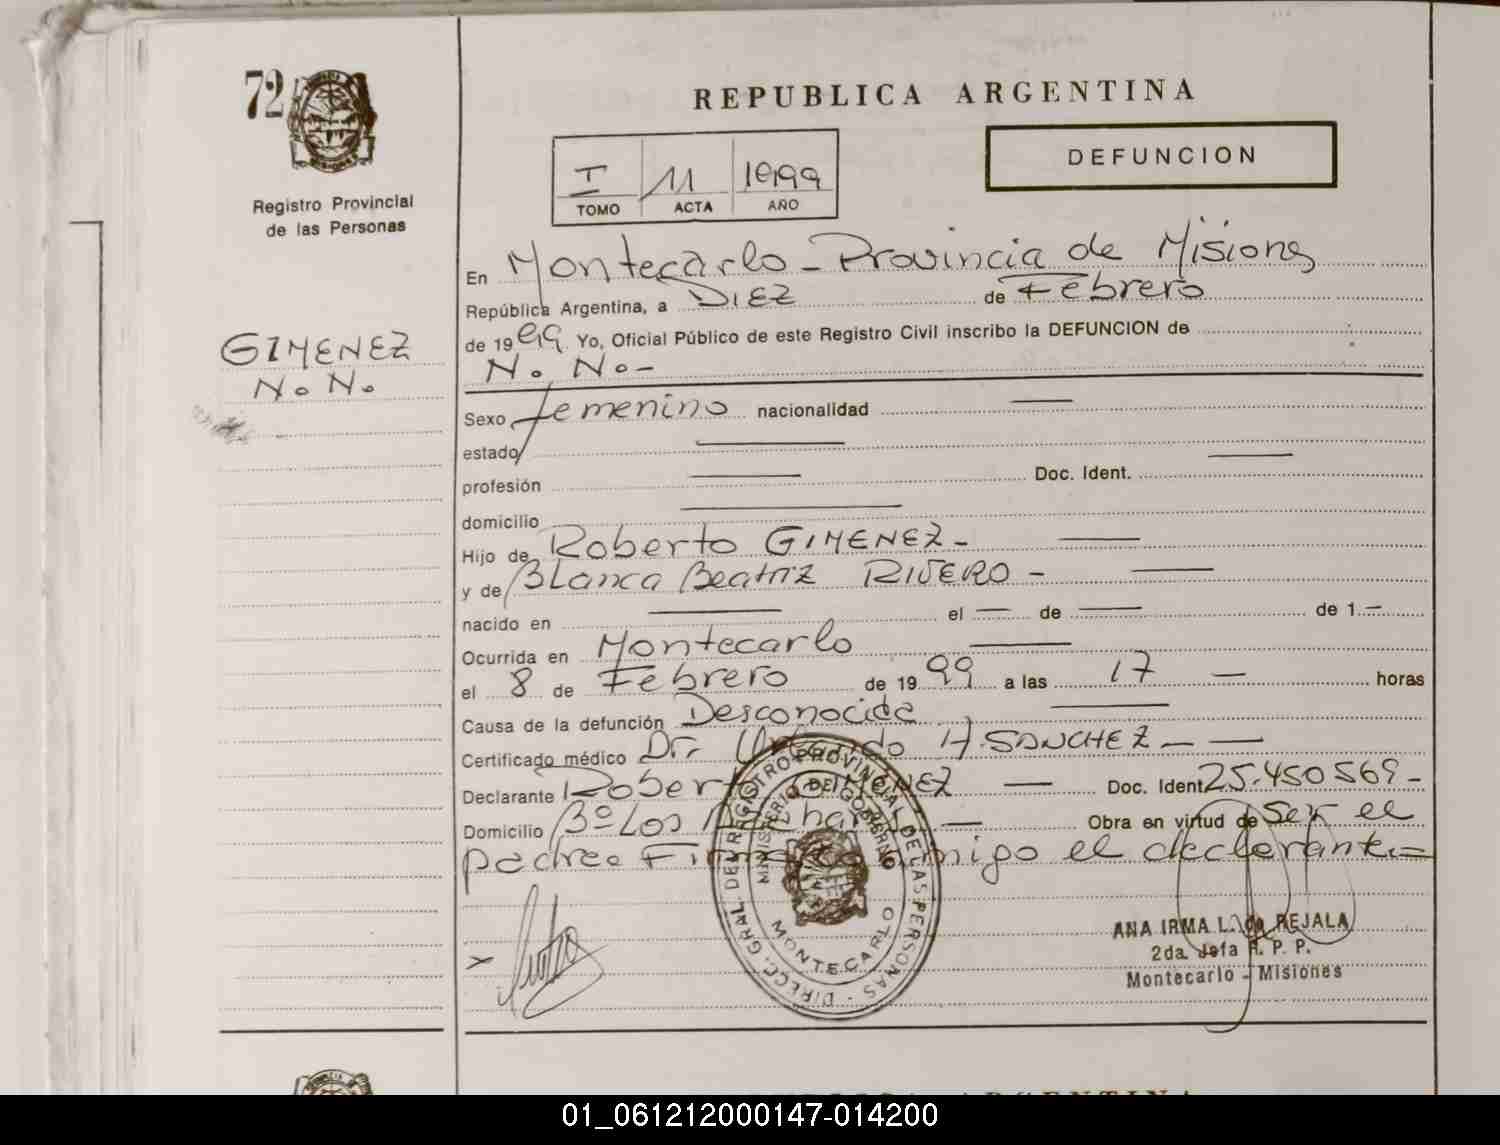 72
REPUBLICA ARGENTINA
DEFUNCION
I 11 1999
TOMO ACTA AÑO
Registro Provincial
de las Personas
GIMENEZ
N. N.
En Montecarlo - Provincia de Misiones
República Argentina, a DIEZ de Febrero
de 1999 Yo, Oficial Público de este Registro Civil inscribo la DEFUNCION de
N. N. -
Sexo femenino nacionalidad —
estado —
profesión — Doc. Ident. —
domicilio —
Hijo de Roberto GIMENEZ - —
y de Blanca Beatriz RIVERO - —
nacido en — el — de — de 1 —
Ocurrida en Montecarlo —
el 8 de Febrero de 1999 a las 17 — horas
Causa de la defunción Desconocida —
Certificado médico Dr. H. SANCHEZ - —
Declarante Roberto GIMENEZ — Doc. Ident. 25.450569 -
Domicilio Bº Los — Obra en virtud de Ser el
padre Firma conmigo el declarante -
DIRECC. GRAL. DEL REGISTRO PROVINCIAL DE LAS PERSONAS
MINISTERIO DE GOBIERNO
MONTECARLO
ANA IRMA L. REJALA
2da. Jefa R. P. P.
Montecarlo - Misiones
01_061212000147-014200